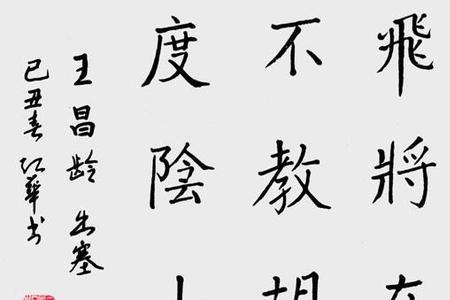 飛將在
不教胡
度陰山
王昌齡 出塞
己丑春 江華书